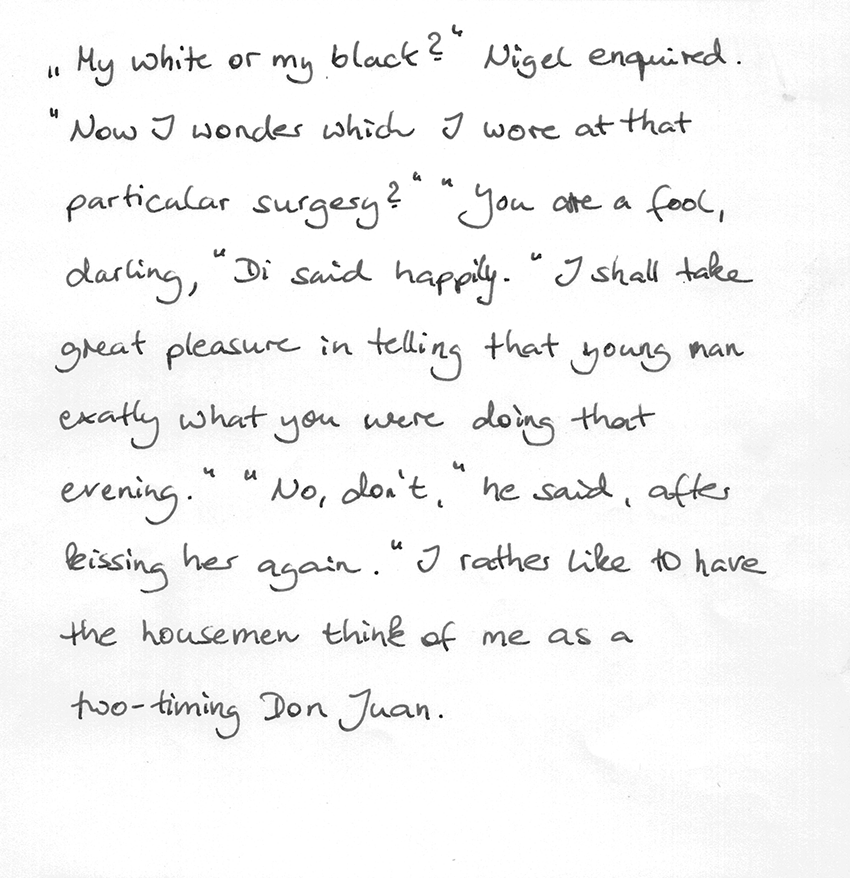 „My white or my black?" Nigel enquired.
"Now I wonder which I wore at that
particular surgery?" "You are a fool,
darling, "Di said happily. "I shall take
great pleasure in telling that young man
exatly what you were doing that
evening." "No, don't," he said, after
kissing her again. "I rather like to have
the housemen think of me as a
two-timing Don Juan.